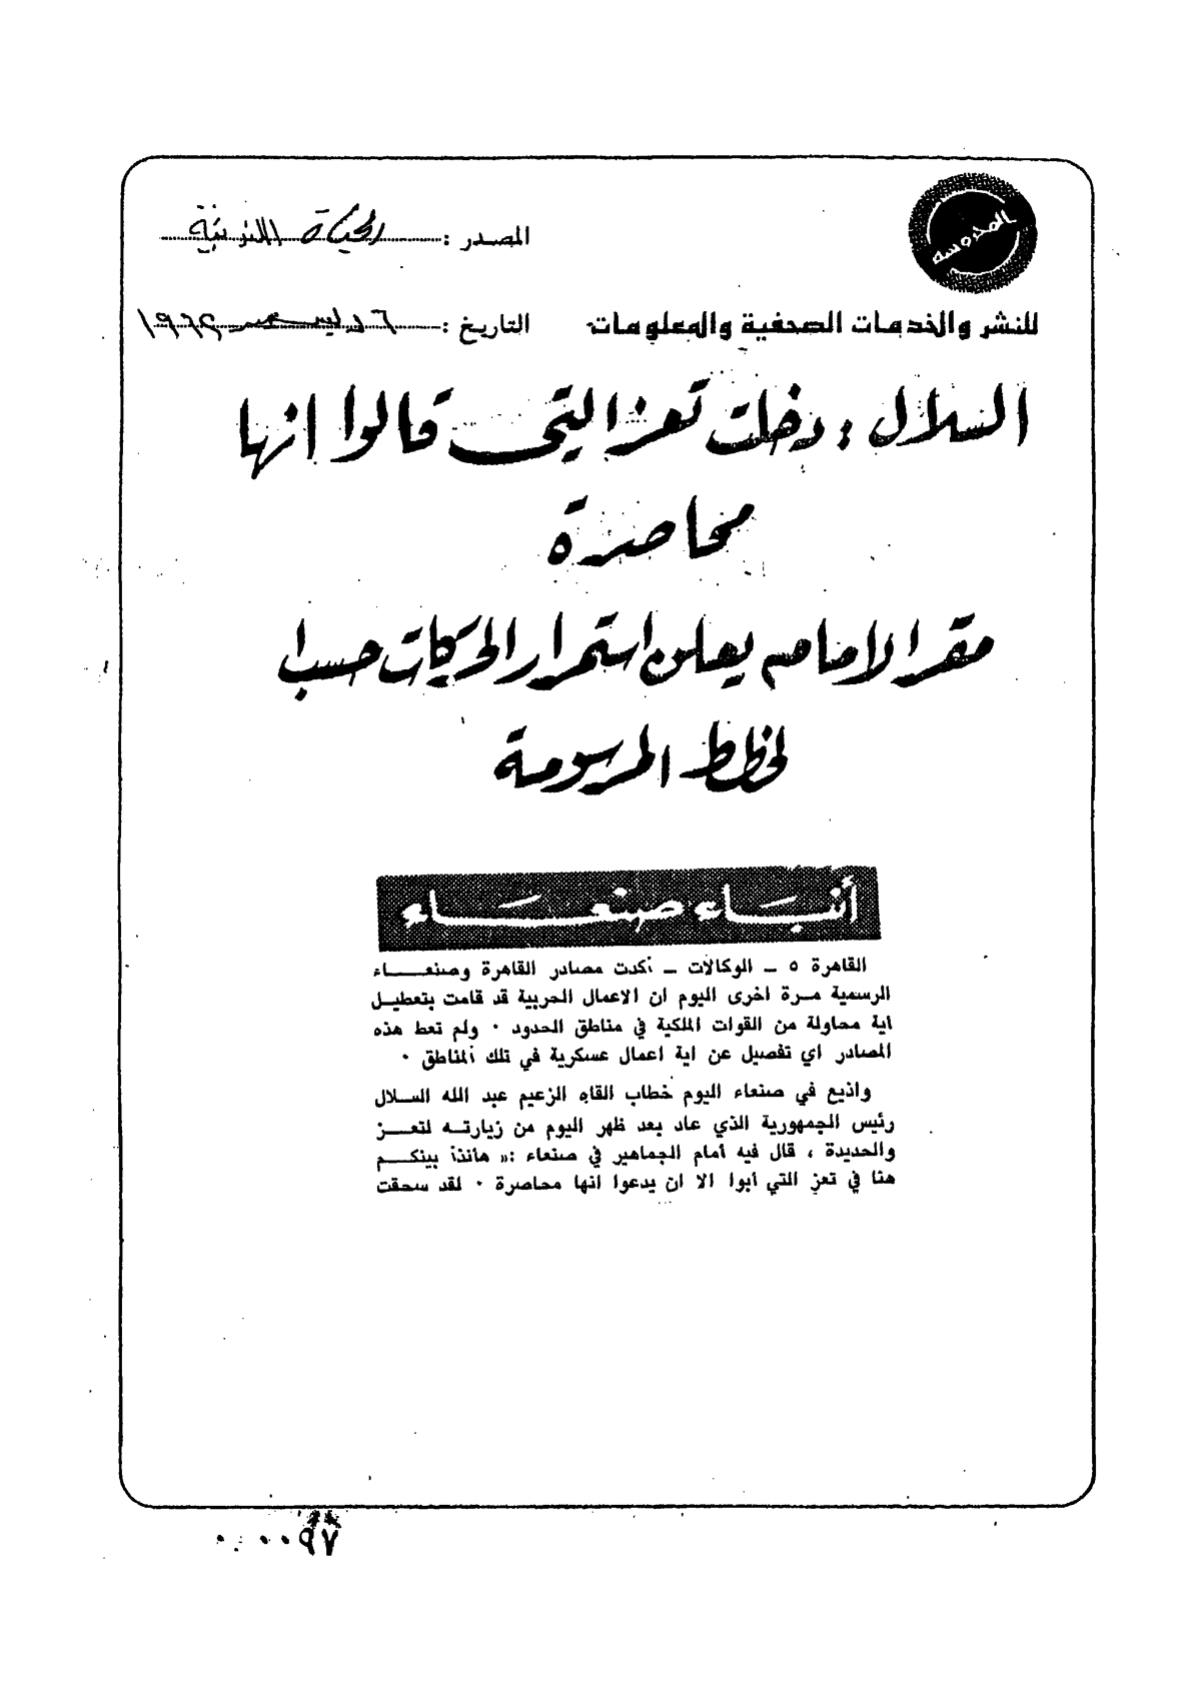 المحروسة
المصدر : الحياة اللبنانية
للنشر والخدمات الصحفية والمعلومات
التاريخ : ٦ ديسمبر ١٩٦٢
السلال : دخلت تعز التي قالوا انها
محاصرة
مقر الامام يعلن استمرار الحركات حسب ا
لخطط المرسومة
أنبـاء صنعـاء
القاهرة ٥ ــ الوكالات ــ أكدت مصادر القاهرة وصنعــاء
الرسمية مـرة اخرى اليوم ان الاعمال الحربية قد قامت بتعطيـل
اية محاولة من القوات الملكية في مناطق الحدود ٠ ولم تعط هذه
المصادر اي تفصيل عن اية اعمال عسكرية في تلك المناطق ٠
واذيع في صنعاء اليوم خطاب القاه الزعيم عبد الله السـلال
رئيس الجمهورية الذي عاد بعد ظهر اليوم من زيارتـه لتعــز
والحديدة ، قال فيه أمام الجماهير في صنعاء :« هأنذا بينكـم
هنا في تعز التي أبوا الا ان يدعوا انها محاصرة ٠ لقد سحقت
٠٠٠٠٩٧